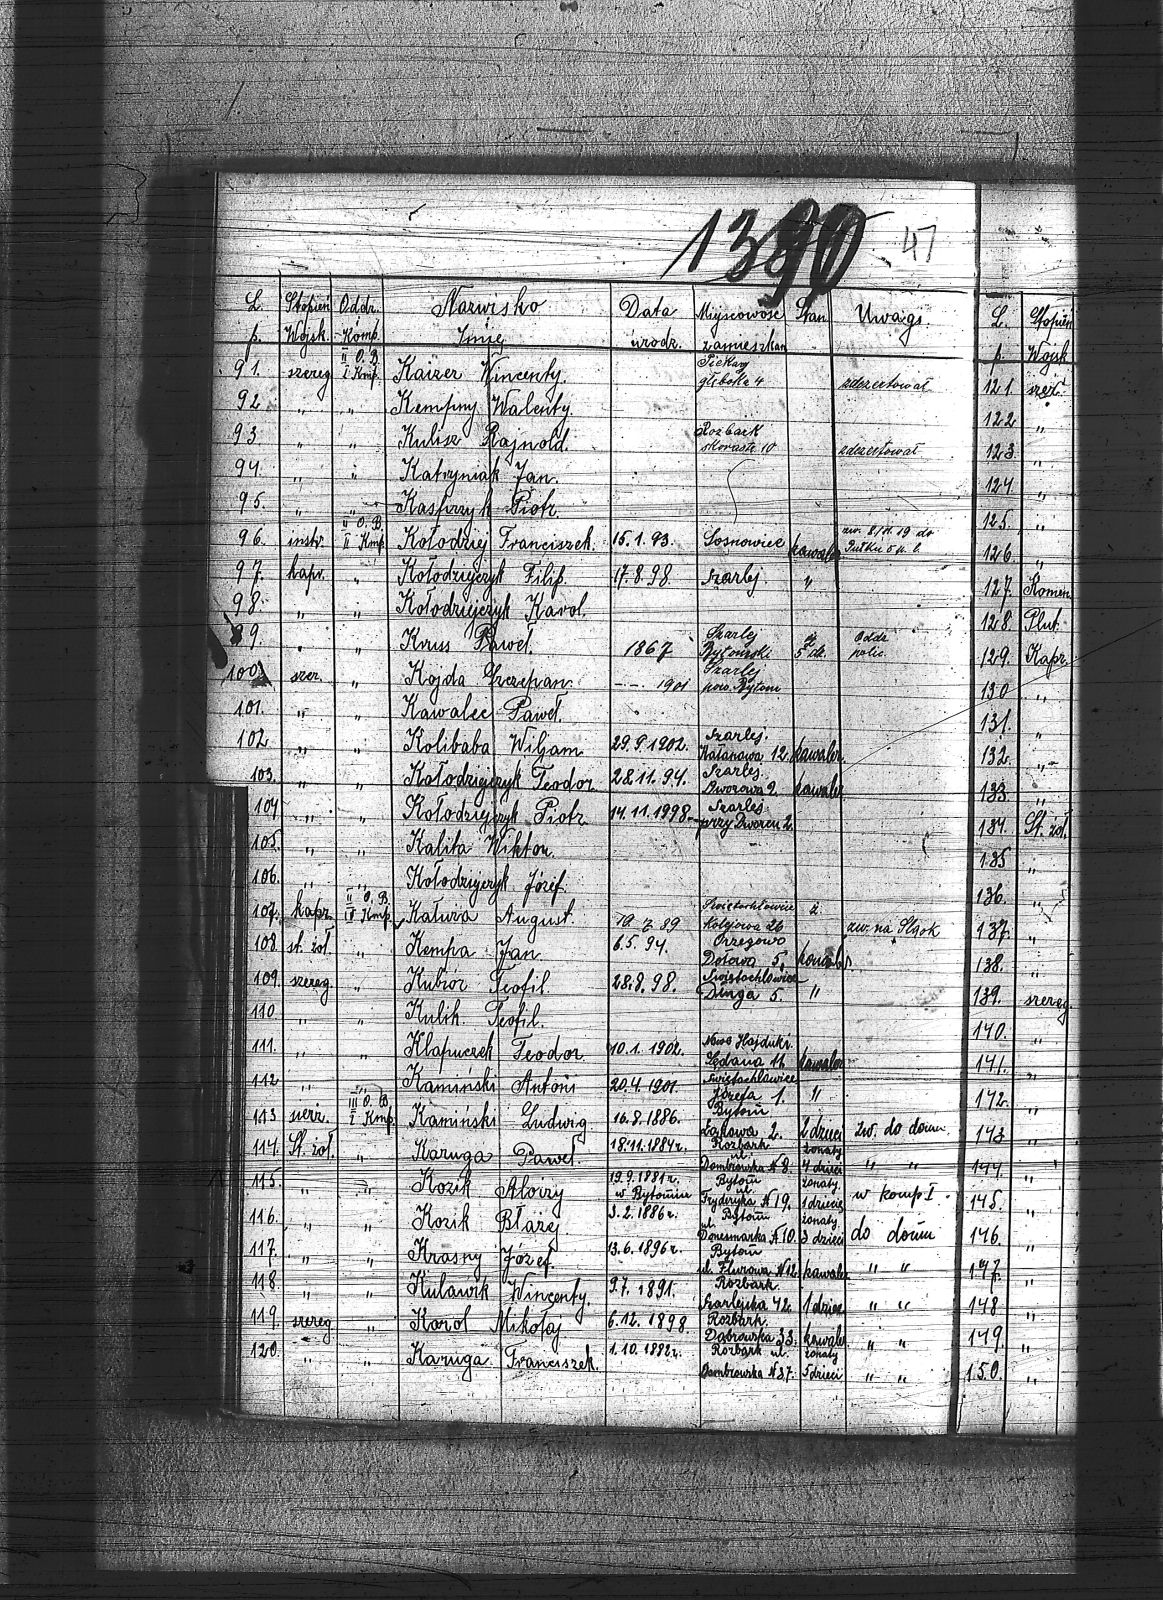 1390 47
L. p. Stopień Wojsk. Oddz. Komp. Nazwisko Imię Data urodz. Miejscowość zamieszkan Stan Uwagi.
91. szereg II O.B. I Kmp. Kaizer Wincenty. Piekary głęboka 4 zdezertował
92 " " Kempny Walenty.
93 " " Kulisz Rajnold. Rozbark 10 zdezertował
94. " " Katryniak Jan.
95. " " Kasprzyk Piotr.
96. instr. II O.B. II Kmp. Kołodziej Franciszek. 15.1.93. Sosnowiec kawaler zw. 8/11.19 do Pułku
97. kapr. " Kołodziejczyk Filip. 17.8.98. Szarlej "
98. " " Kołodziejczyk Karol.
99. " " Kruss Paweł. 1867 Szarlej Bytomski ż 5 dz. Oddz polic.
100 szer. " Kojda Szczepan. -- 1901 Szarlej pow. Bytom
101. " " Kawalec Paweł.
102 " " Kolibaba Wiljam 29.9.1902. Szarlej. 12. kawaler
103. " " Kołodziejczyk Teodor 28.11.94. Szarlej. Dworcowa 2. kawaler
104 " " Kołodziejczyk Piotr 14.11.1998. Szarlej. przy Dworcu 2.
105. " " Kalita Wiktor.
106. " " Kołodziejczyk Józef.
107. kapr. II O.B. IV Kmp. Katura August. 19.7.89 Świętochłowice Kolejowa 26 ż zw. na Sląsk
108. st. żoł. " Kempa Jan. 6.5.94. Orzegowo Dołowa 5. kawaler
109. szereg " Kubiór Teofil. 28.8.98. Świętochłowice Dinga 5. "
110 " " Kulik Teofil.
111. " " Klapuczek Teodor 10.1.1902. Nowe Hajduki. 11. kawaler
112 " " Kamiński Antoni 20.4.1901. Świętochłowice Józefa 1. "
113 sierż. III O.B. I Kmp. Kamiński Ludwig 16.8.1886. Bytom 2. 2 dzieci zw. do domu
114. St. żoł. " Karuga Paweł 18.11.1884r. Rozbark ul. Dombrowska N 8. żonaty 4 dzieci " "
115. " " Kozik Alojzy 19.9.1881r. w Bytomiu Bytom ul. Frydryka N 19. żonaty w komp I.
116. " " Kozik Błażej 3.2.1886r. Bytom ul. Donesmarka N 10. żonaty 3 dzieci do domu
117. " " Krasny Józef 13.6.1896r. Bytom ul. Flurowa N 12. kawaler " "
118. " " Kulawik Wincenty. 9.7.1891. Rozbark Szarlejska 42. 1 dziec " "
119. szereg " Karol Mikołaj 6.12.1898. Rozbark. Dąbrowska 33. kawaler " "
120. " " Karuga Franciszek. 1.10.1882r. Rozbark ul. Dombrowska N 37. żonaty 5 dzieci " "
L. p. Stopień Wojsk
121. szer.
122 "
123 "
124. "
125. "
126. "
127. Komen
128. Plut.
129. Kapr.
130 "
131. "
132. "
133. "
134. St. żoł.
135 "
136. "
137. "
138. "
139. szereg.
140. "
141. "
142. "
143 "
144 "
145. "
146. "
147. "
148 "
149. "
150. "